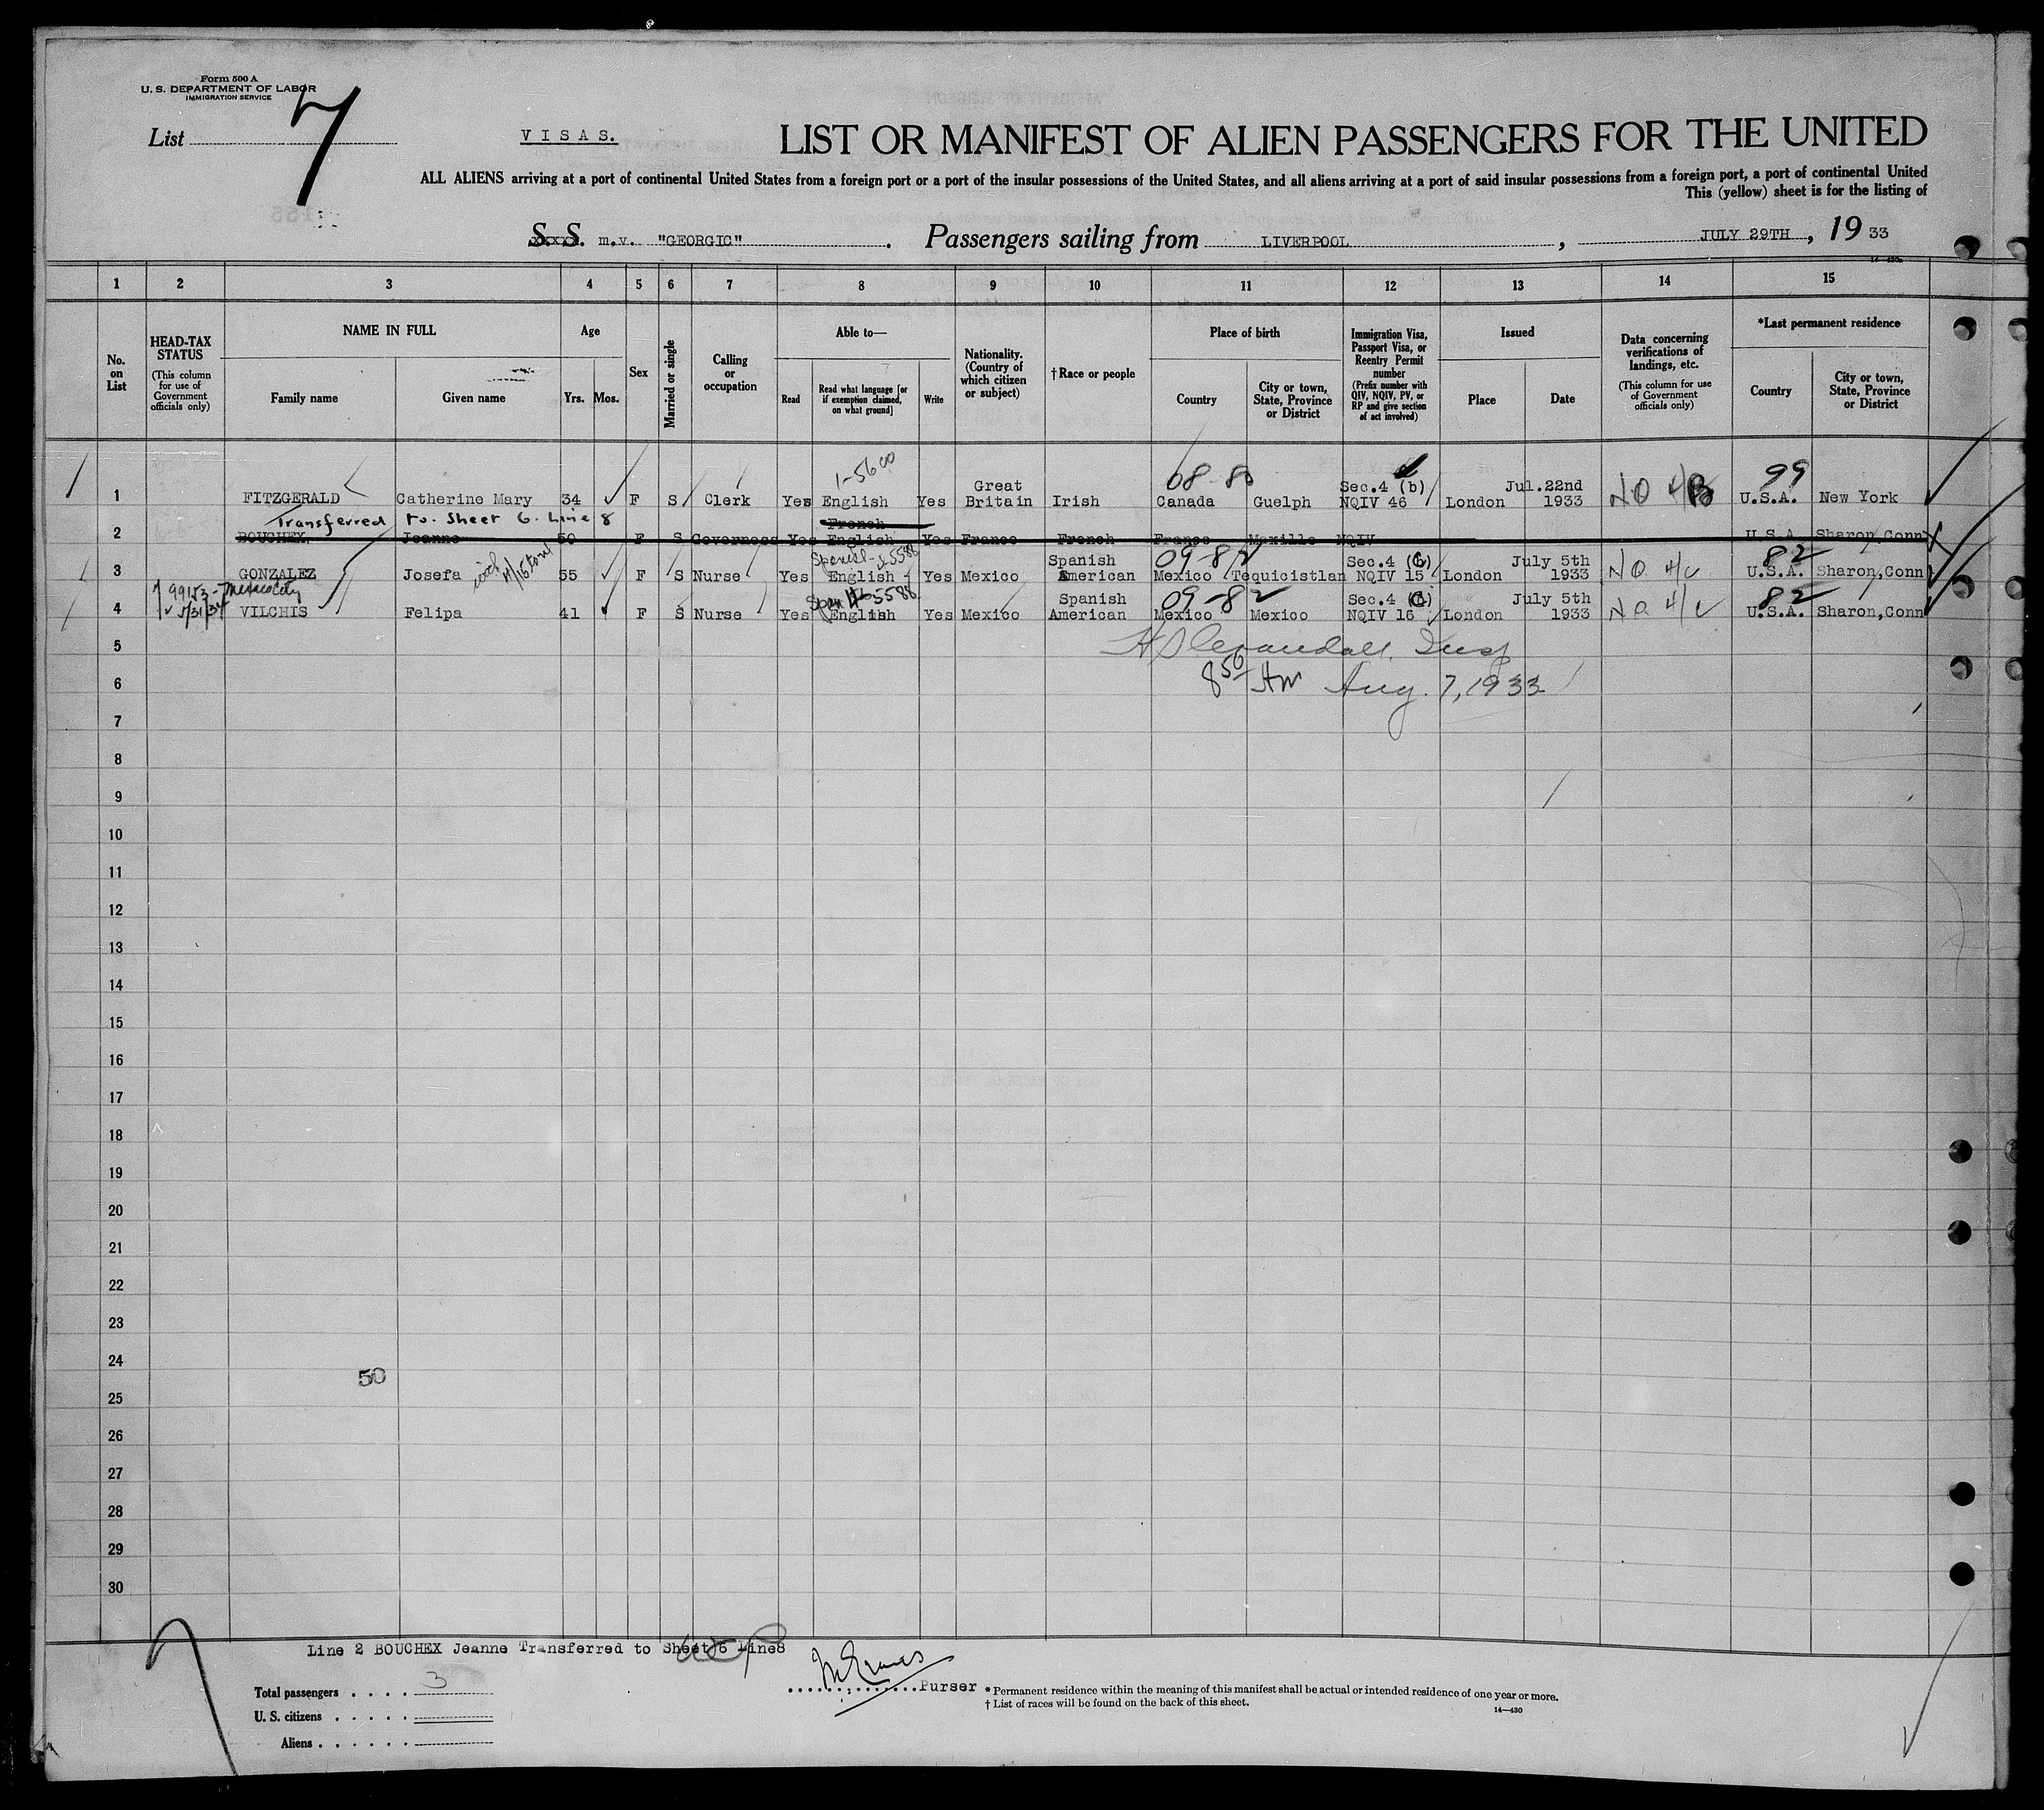 Form 500 A
U. S. DEPARTMENT OF LABOR
IMMIGRATION SERVICE
List 7
VISAS.
LIST OR MANIFEST OF ALIEN PASSENGERS FOR THE UNITED
ALL ALIENS arriving at a port of continental United States from a foreign port or a port of the insular possessions of the United States, and all aliens arriving at a port of said insular possessions from a foreign port, a port of continental United
This (yellow) sheet is for the listing of
S. S. m.v. "GEORGIC" . Passengers sailing from LIVERPOOL , JULY 29TH , 19 33
14—430a
1 2 3 4 5 6 7 8 9 10 11 12 13 14 15
No. on List
HEAD-TAX STATUS
(This column for use of Government officials only)
NAME IN FULL
Family name
Given name
Age
Yrs. Mos.
Sex
Married or single
Calling or occupation
Able to—
Read
Read what language [or if exemption claimed, on what ground]
Write
Nationality. (Country of which citizen or subject)
†Race or people
Place of birth
Country
City or town, State, Province or District
Immigration Visa, Passport Visa, or Reentry Permit number
(Prefix number with QIV, NQIV, PV, or RP and give section of act involved)
Issued
Place
Date
Data concerning verifications of landings, etc.
(This column for use of Government officials only)
*Last permanent residence
Country
City or town, State, Province or District
1-5600
08-80
99
Great Sec.4 (b) Jul.22nd
1 FITZGERALD Catherine Mary 34 F S Clerk Yes English Yes Britain Irish Canada Guelph NQIV 46 London 1933 NO 4/B U.S.A. New York
Transferred to Sheet 6 Line 8
French
2 BOUCHEX Jeanne 50 F S Governess Yes English Yes France French France Maxille NQIV U.S.A. Sharon,Conn
Spanish 09-82 Sec.4 (C) July 5th 82
3 GONZALEZ Josefa 55 F S Nurse Yes English Yes Mexico American Mexico Tequicistlan NQIV 15 London 1933 NO 4/c U.S.A. Sharon,Conn
99153-Mexico City
5/31/34
Spanish 09-82 Sec.4 (C) July 5th 82
4 VILCHIS Felipa 41 F S Nurse Yes English Yes Mexico American Mexico Mexico NQIV 16 London 1933 NO 4/c U.S.A. Sharon,Conn
5
6
850 AM Aug. 7, 1933
7
8
9
10
11
12
13
14
15
16
17
18
19
20
21
22
23
24
50
25
26
27
28
29
30
Line 2 BOUCHEX Jeanne Transferred to Sheet 6 Line8
Total passengers . . . . 3
U. S. citizens . . . . .
Aliens . . . . . .
Purser
* Permanent residence within the meaning of this manifest shall be actual or intended residence of one year or more.
† List of races will be found on the back of this sheet.
14—430